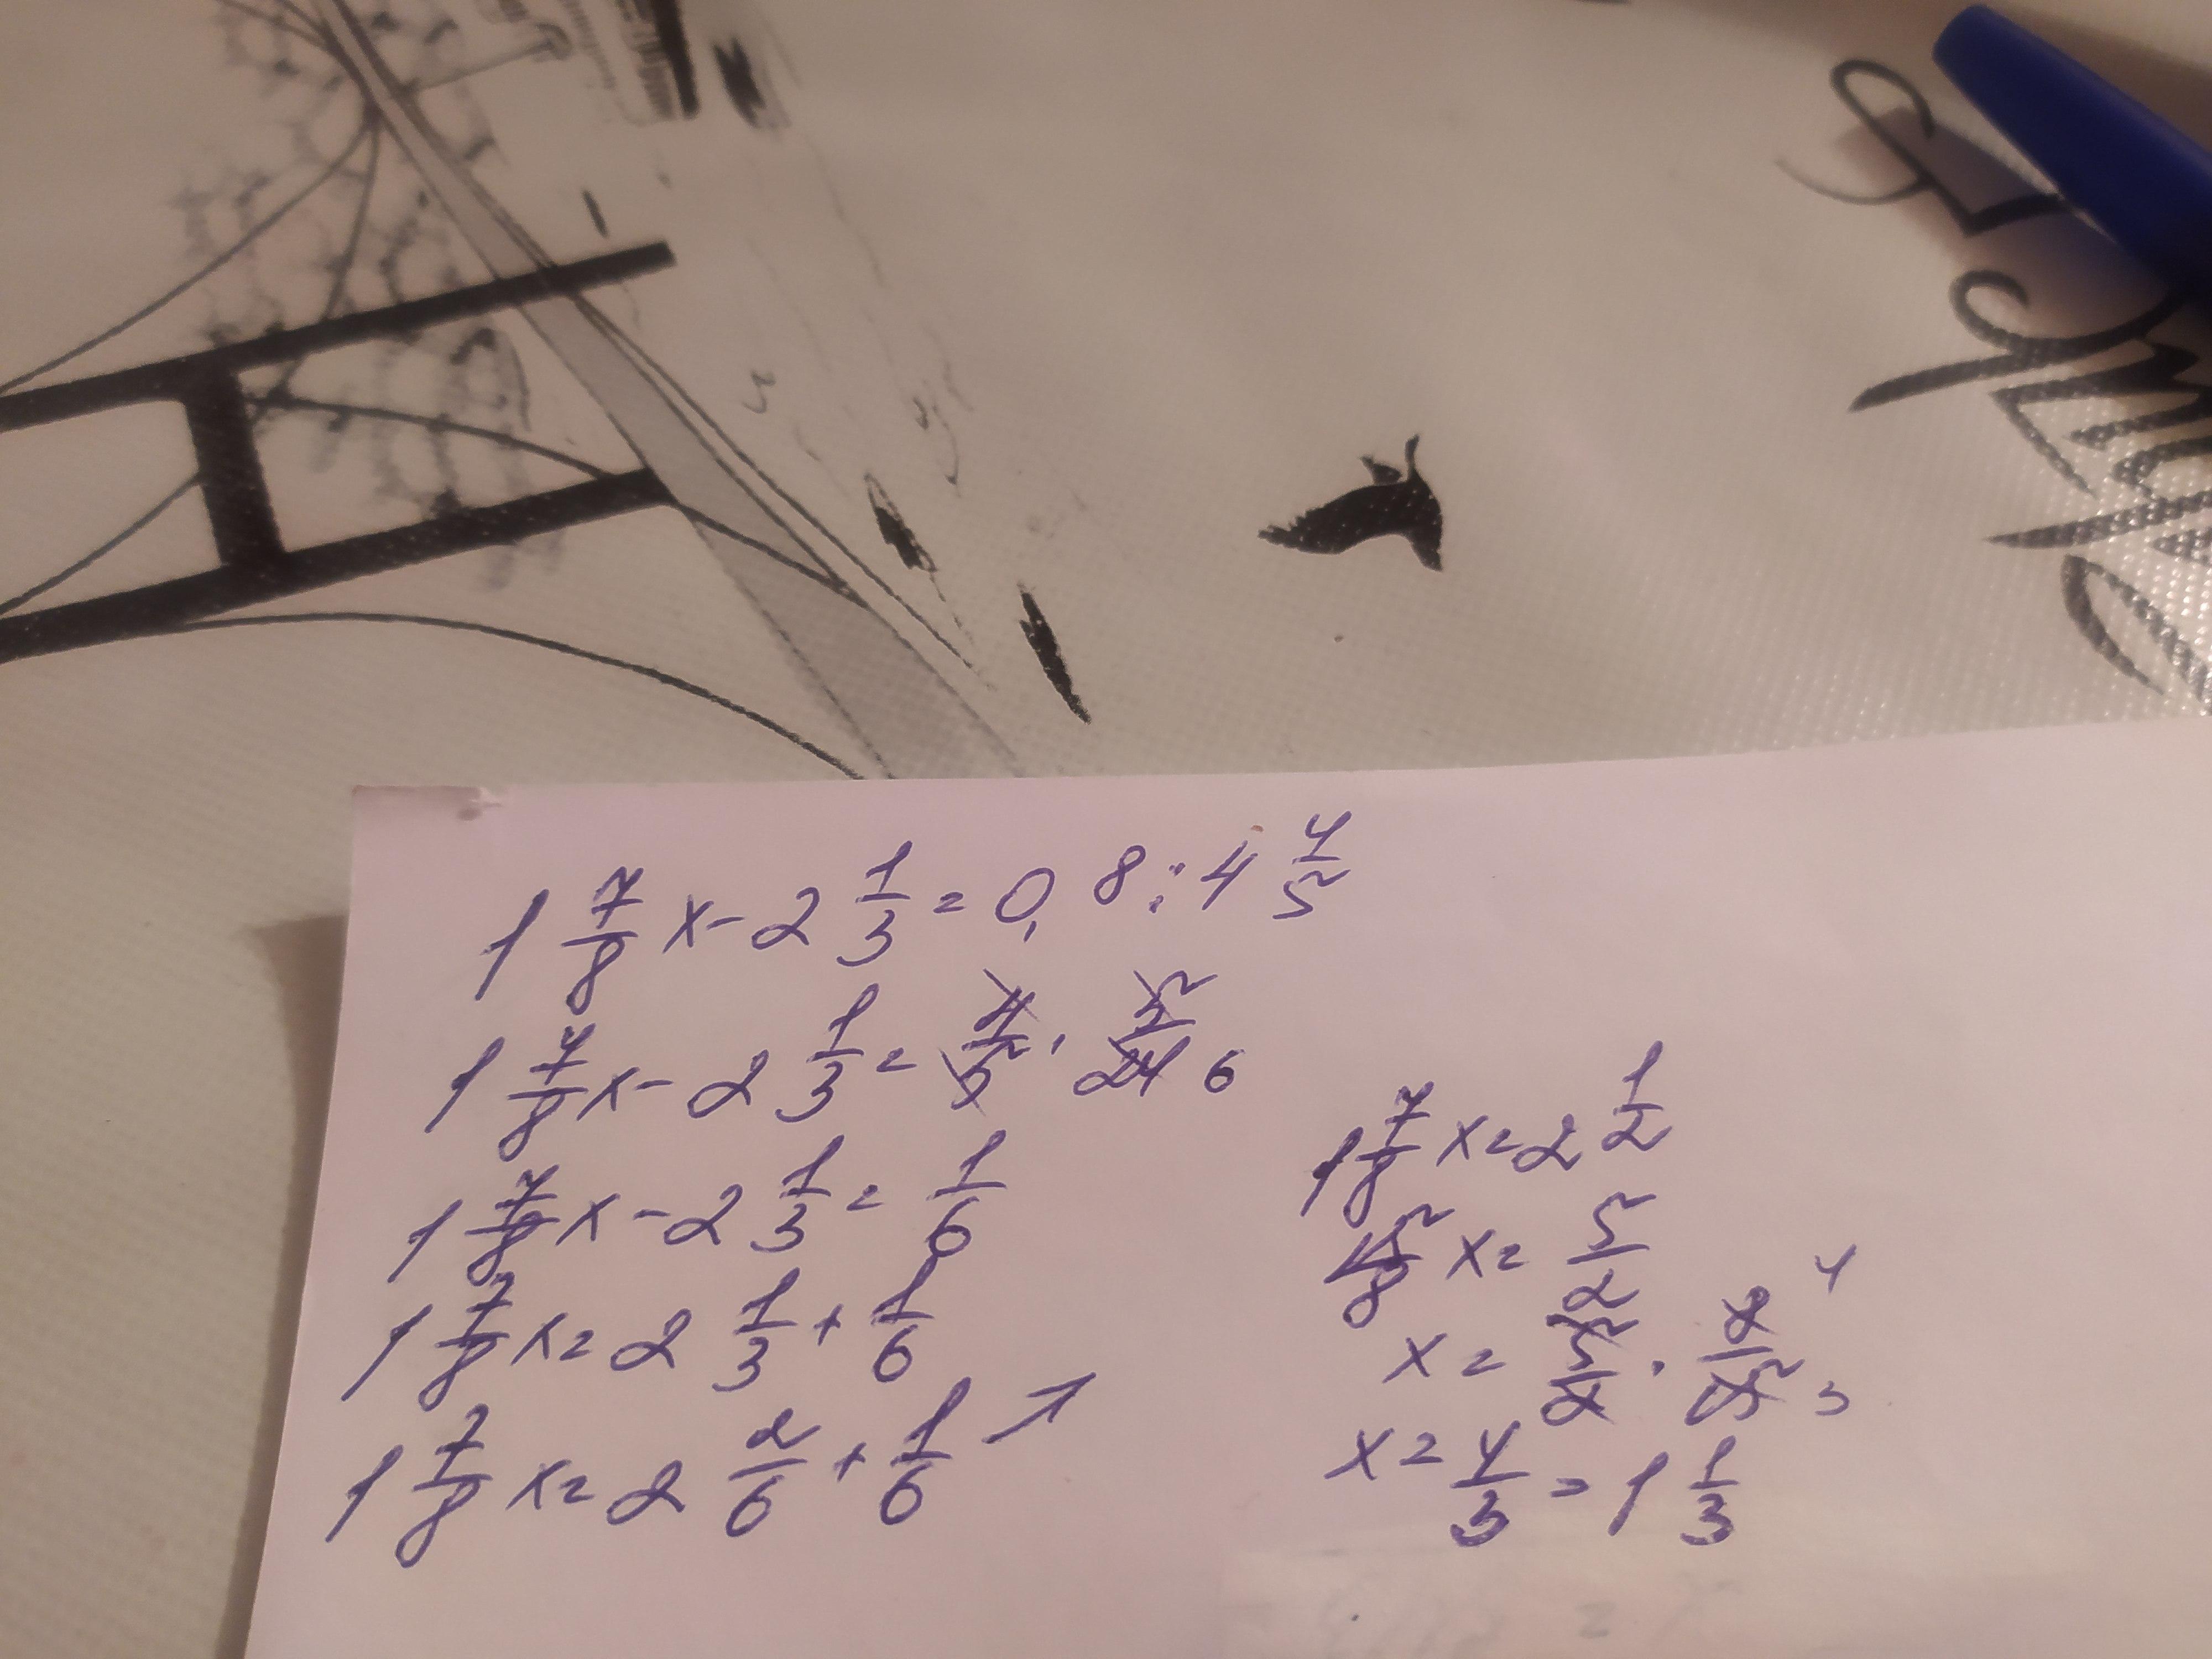 1 7/8 x - 2 1/3 = 0,8 : 4 4/5
1 7/8 x - 2 1/3 = 4/5 · 5/24 6
1 7/8 x - 2 1/3 = 1/6
1 7/8 x = 2 1/3 + 1/6
1 7/8 x = 2 2/6 + 1/6
1 7/8 x = 2 1/2
15/8 x = 5/2
x = 5/2 · 8/15 4 3
x = 4/3 = 1 1/3